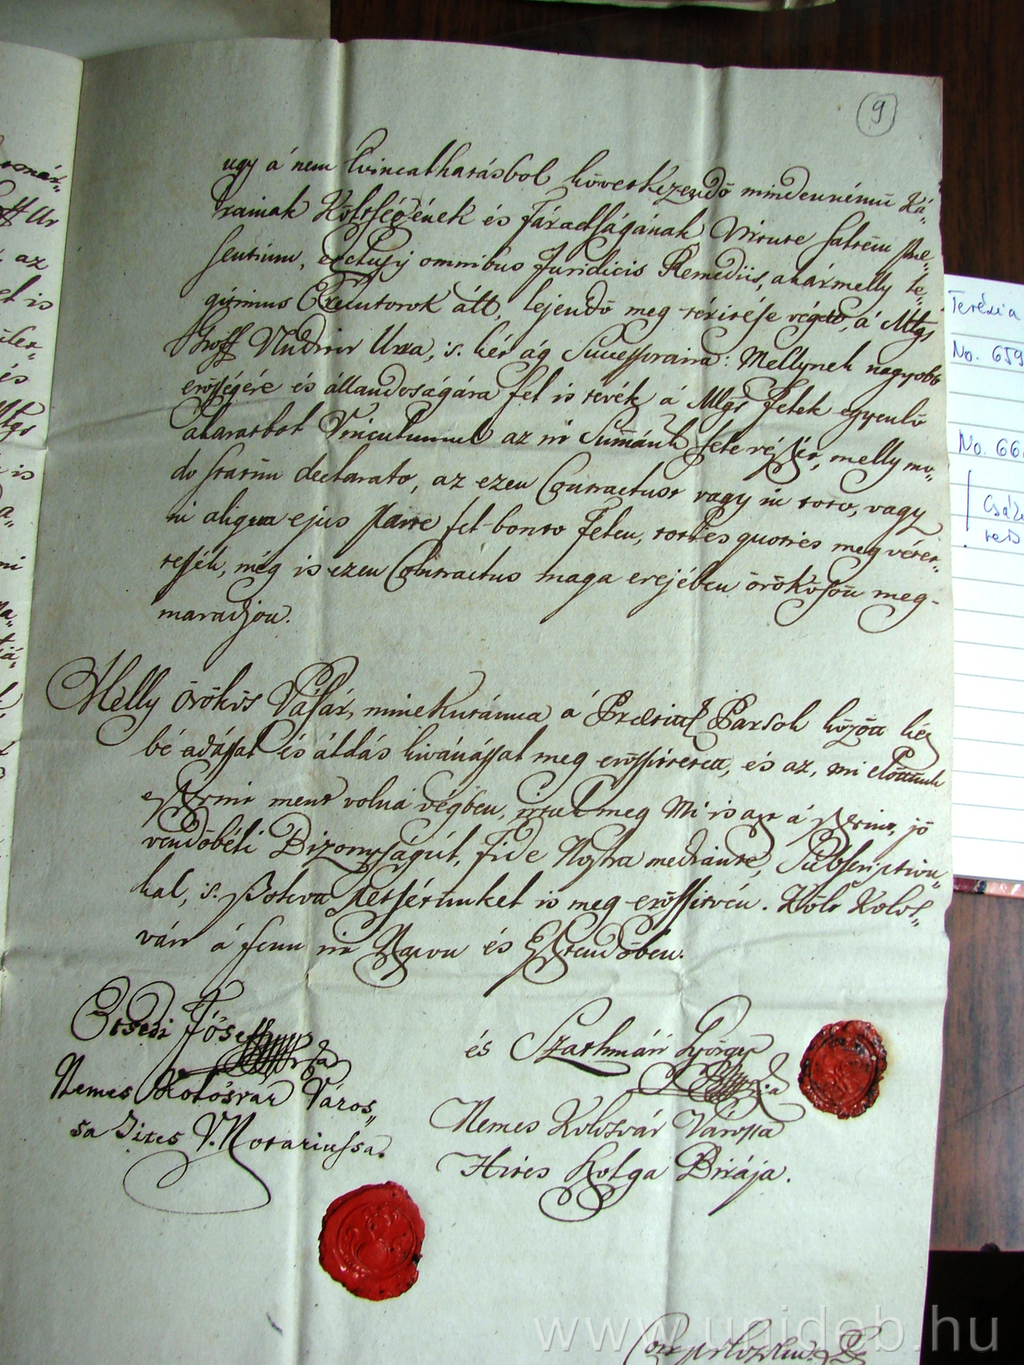 9
ugy á nem Evincalhatásbol következendö mindennémü Ká-
rainak Költségének és Fáradságának Virtute Saltem Prae-
sentium, exclusis omnibus Juridicis Remediis, akármelly le-
gitimus Executorok ált, lejendö meg téritése végett, á Mlgs
Groff Ura, s. két ág Successoraira: Mellynek nagyobb
erösségére és állandoságára fel is tevék á Mlgs Felek egyenlö
akaratbol Vinculumul az irt Summának fele részit, melly mo-
do statim declarato, az ezen Contractust vagy in toto, vagy
in aliqua ejus parte fel-bonto Felen, toties quoties meg vétet-
tessék, még is ezen Contractus maga erejében örökössön meg-
maradjon.
Melly örökös Vásár, minekutánna á Praetitulált Partsok között kéz
bé adással és áldás kivánással meg erössittetett, és az, mi Elöttünk
eszerint ment volna végben, irtuk meg Mi is azt á szerint, jö
vendöbéli Bizonyságúl, fide Nostra mediante, Subscriptión-
kal, s. szokott petsétünkel is meg-erössitvén. Költ Kolos-
várt á fenn irt Napon és Esztendöben.
Jósef
Nemes Kolosvár Város-
sa Hites V. Notariussa.
és Szathmári György
Nemes Kolozsvár Várossa
Hites Polga Birája.
Terézia
No. 659
No. 66
www.unideb.hu